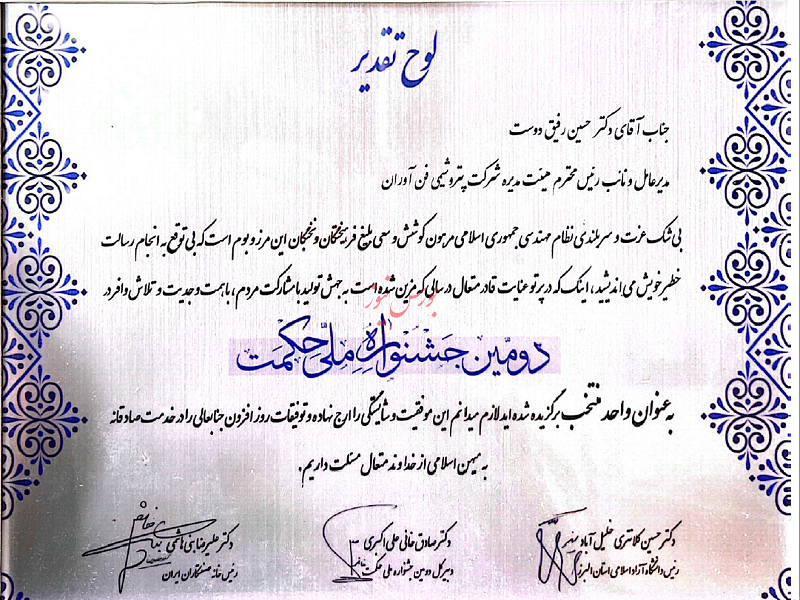 لوح تقدیر
جناب آقای دکتر حسین رفیق دوست
مدیرعامل و نائب رئیس محترم هیئت مدیره شرکت پتروشیمی فن آوران
بی شک عزت و سربلندی نظام مهندسی جمهوری اسلامی مرهون کوشش و سعی بلیغ فرهیختگان و نخبگان این مرز و بوم است که بی توقع به انجام رسالت
خطیر خویش می اندیشید ، اینک که در پرتو عنایت قادر متعال در سالی که مزین شده است به جهش تولید با مشارکت مردم ، با همت و جدیت و تلاش وافر در
بورس نیوز
دومین جشنواره ملی حکمت
به عنوان واحد منتخب برگزیده شده اید لازم میدانم این موفقیت و شایستگی را ارج نهاده و توفیقات روز افزون جنابعالی را در خدمت صادقانه
به میهن اسلامی از خداوند متعال مسئلت داریم.
دکتر حسین کلانتری خلیل آباد
رئیس دانشگاه آزاد اسلامی استان البرز
دکتر صادق خانی علی اکبری
دبیر کل دومین جشنواره ملی حکمت
دکتر علیرضا بنی هاشمی
رئیس خانه صنعتکاران ایران